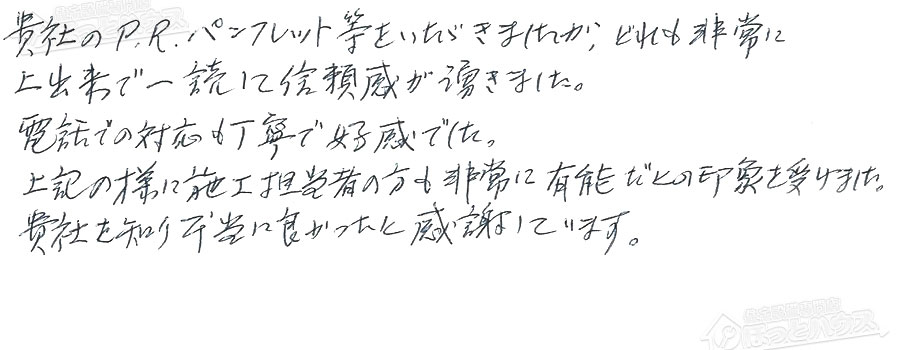 貴社のP.R.パンフレット等をいただきましたが、どれも非常に
上出来で一読して信頼感が湧きました。
電話での対応も丁寧で好感でした。
上記の様に施工担当者の方も非常に有能だとの印象を受けました。
貴社を知り本当に良かったと感謝しています。
ほっとハウス